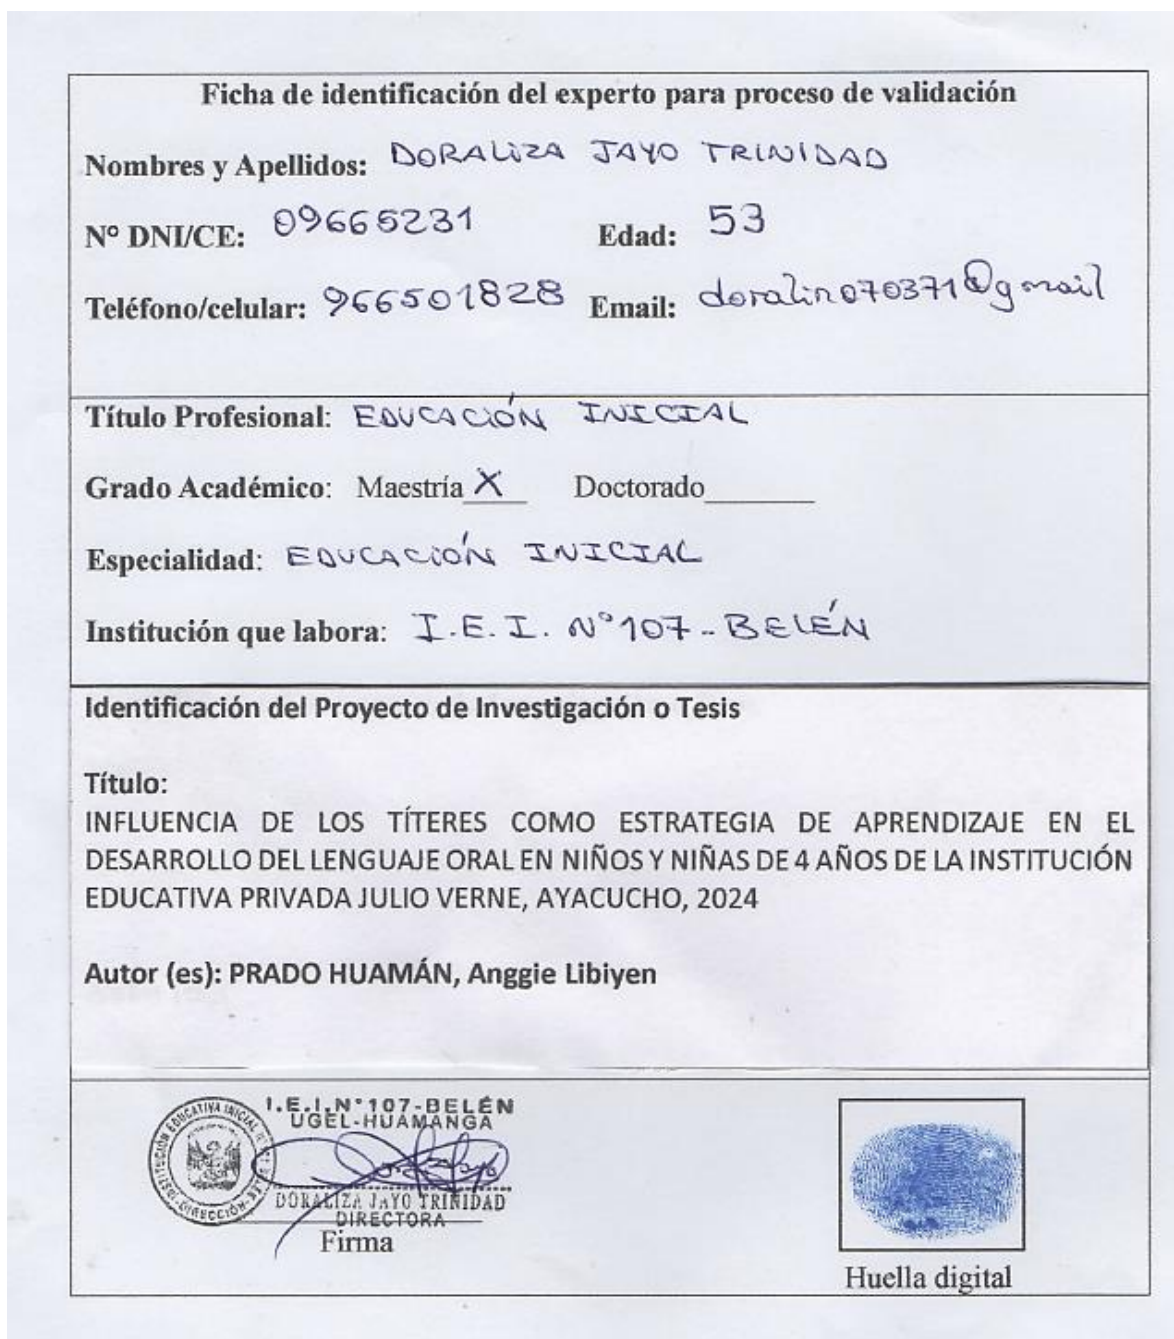 Ficha de identificación del experto para proceso de validación
Nombres y Apellidos: DORALIZA JAYO TRINIDAD
N° DNI/CE: 09665231 Edad: 53
Teléfono/celular: 966501828 Email: doralino70371@gmail
Título Profesional: EDUCACIÓN INICIAL
Grado Académico: Maestría X Doctorado
Especialidad: EDUCACIÓN INICIAL
Institución que labora: I.E.I. N°107-BELÉN
Identificación del Proyecto de Investigación o Tesis
Título:
INFLUENCIA DE LOS TÍTERES COMO ESTRATEGIA DE APRENDIZAJE EN EL
DESARROLLO DEL LENGUAJE ORAL EN NIÑOS Y NIÑAS DE 4 AÑOS DE LA INSTITUCIÓN
EDUCATIVA PRIVADA JULIO VERNE, AYACUCHO, 2024
Autor (es): PRADO HUAMÁN, Anggie Libiyen
I.E.I.N°107-BELÉN
UGEL-HUAMANGA
DORALIZA JAYO TRINIDAD
DIRECTORA
Firma
Huella digital